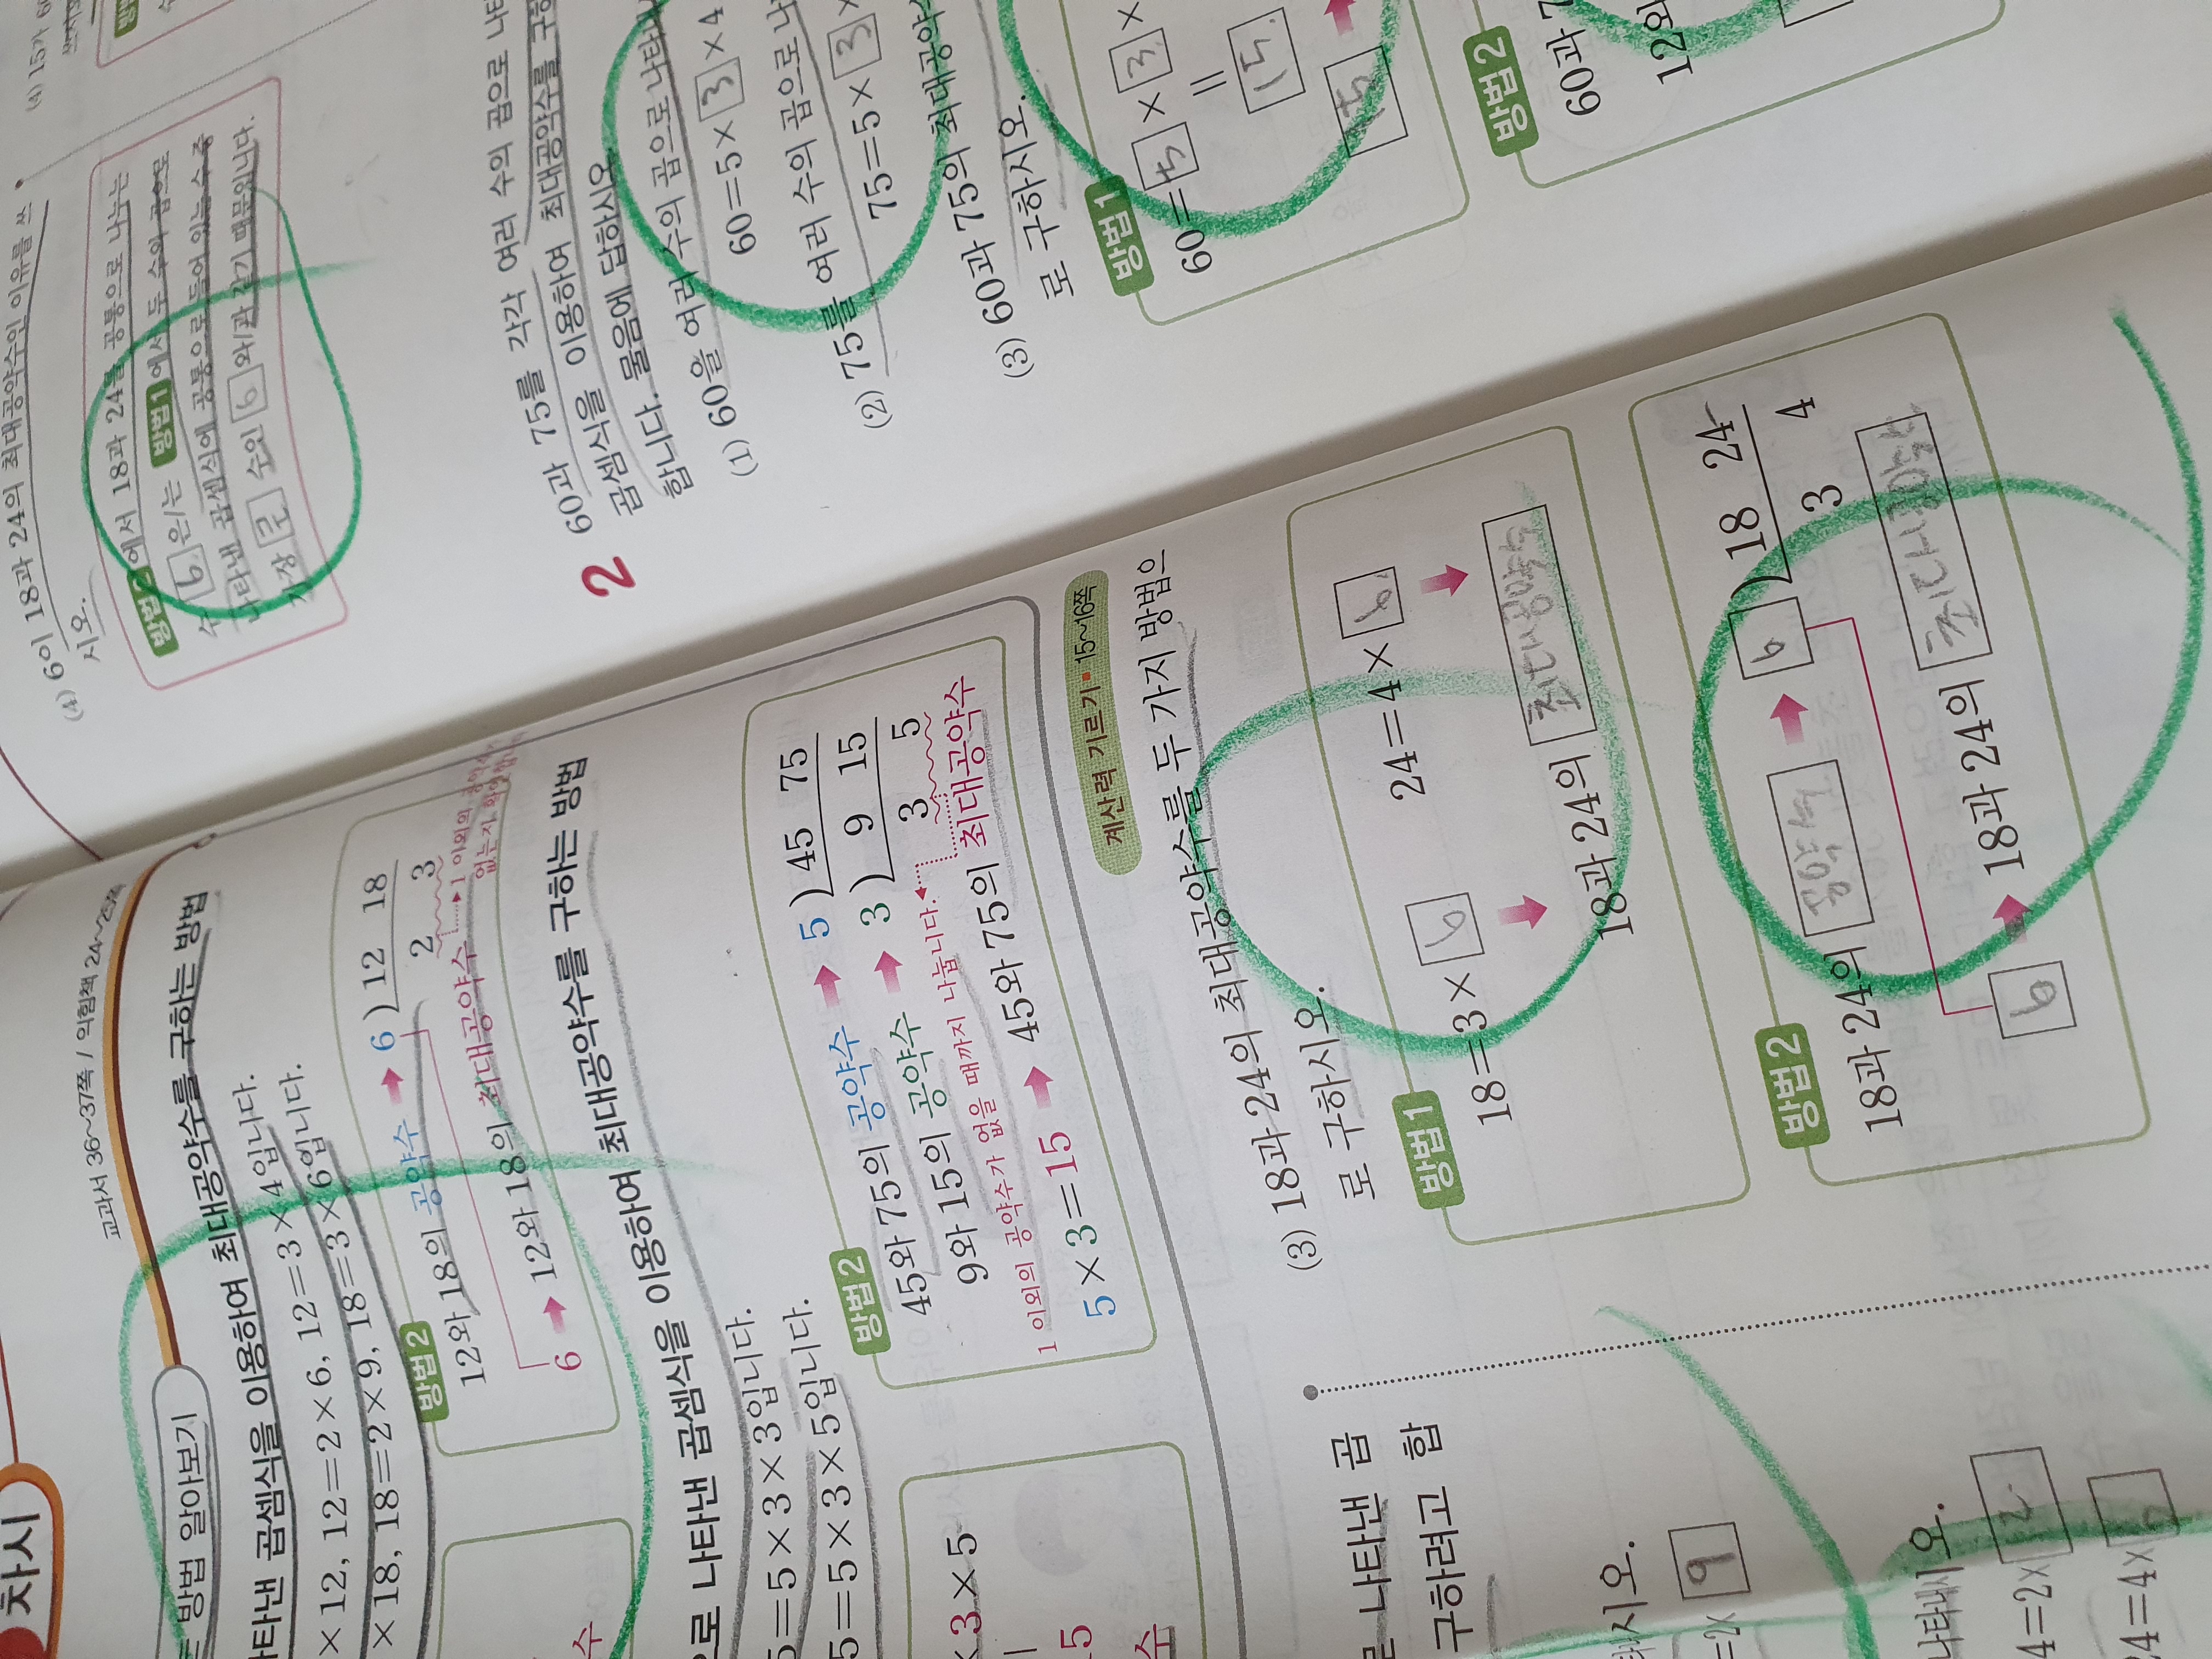 차시
교과서 36~37쪽 / 익힘책 24~25쪽
방법 알아보기
나타낸 곱셈식을 이용하여 최대공약수를 구하는 방법
× 12, 12=2×6, 12=3×4입니다.
× 18, 18=2×9, 18=3×6입니다.
방법2
12와 18의 공약수 ➡ 6 ) 12 18
2 3
6 ➡ 12와 18의 최대공약수
1 이외의
없는지
수
으로 나타낸 곱셈식을 이용하여 최대공약수를 구하는 방법
5=5×3×3입니다.
5=5×3×5입니다.
×3×5
15
수
방법2
45와 75의 공약수 ➡ 5 ) 45 75
9와 15의 공약수 ➡ 3 ) 9 15
3 5
1 이외의 공약수가 없을 때까지 나눕니다.
5×3=15 ➡ 45와 75의 최대공약수
계산력 기르기 • 15~16쪽
나타낸 곱
구하려고 합
시오.
=2× 9
나타내시오.
4=2× 12
24=4×
(3) 18과 24의 최대공약수를 두 가지 방법으
로 구하시오.
방법1
18=3× 6 24=4× 6
18과 24의 최대공약수
방법2
18과 24의 공약수 ➡ 6 ) 18 24
3 4
6 ➡ 18과 24의 최대공약수
(4) 6이 18과 24의 최대공약수인 이유를 쓰
시오.
방법2 에서 18과 24를 공통으로 나누는
수 6 은/는 방법1 에서 두 수의 곱으로
나타낸 곱셈식에 공통으로 들어 있는 수 중
가장 큰 수인 6 와/과 같기 때문입니다.
(4) 15가
2 60과 75를 각각 여러 수의 곱으로
곱셈식을 이용하여 최대공약수를
합니다. 물음에 답하시오.
(1) 60을 여러 수의 곱으로 나타내
60=5× 3 ×4
(2) 75를 여러 수의 곱으로
75=5× 3 ×
(3) 60과 75의 최대공약수
로 구하시오.
방법1
60= 5 × 3 ×
=
15
방법2
60과
12와